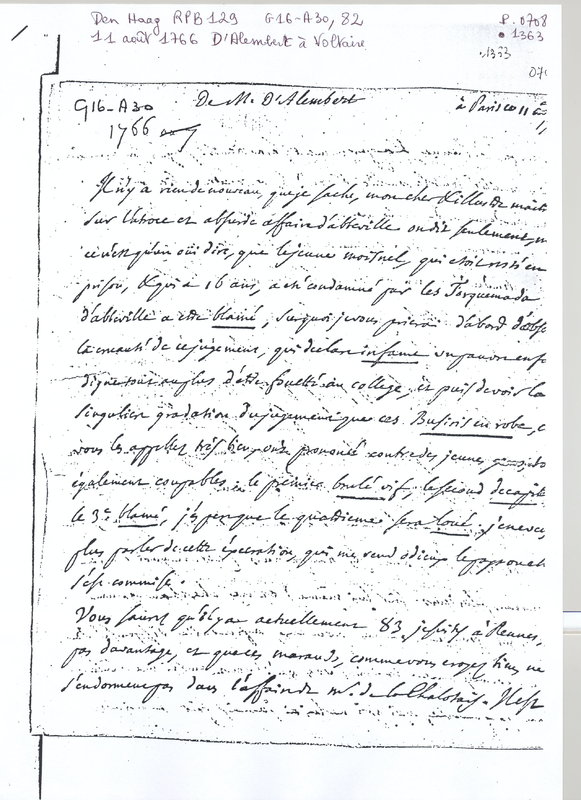 Den Haag RPB 129 G16-A30, 82
11 août 1766 D'Alembert à Voltaire
P. 0708
1363
.1333
070
G16-A30
1766
De M. D'Alembert
à Paris ce 11 a
Il n'y a rien de nouveau, que je sache, mon cher & illustre maitr
sur l'atroce et absurde affaire d'abbeville on dit seulement, m
ce n'est qu'un ouï dire, que le jeune moisnel, qui etoit resté en
prison, & qui a 16 ans, a été condamné par les Torquemada
d'abbeville a etre blamé, sur quoi je vous prierai d'abord d'obse
la cruauté de ce jugement, qui declare infame un pauvre enfa
digne tout au plus d'etre fouetté au college, et puis de voir la
singuliere gradation du jugement que ces Busiris en robe, c
vous les appellez très bien, ont prononcé contre des jeunes gens
également coupables. le premier brulé vif, le second decapité
le 3e. blamé, j'espere que le quatrieme sera loué, je ne veu
plus parler de cette execration, qui me rend odieux le pays ou el
s'est commise.
Vous saurez qu'il y a actuellement 83 jesuites à Rennes,
pas davantage, et que ces marauds, comme vous croyez bien, ne
s'endorment pas dans l'affaire de mr. de la Chalotais. Il est